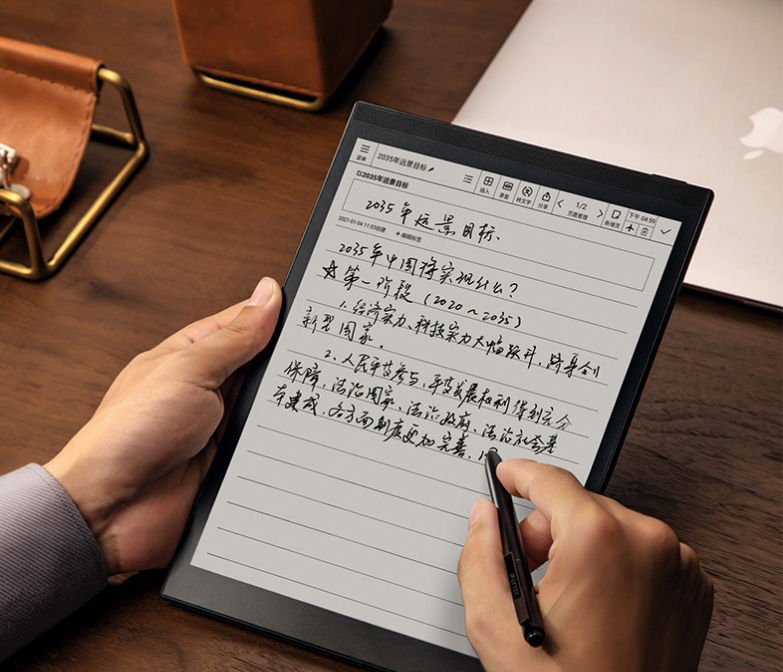 2035年远景目标
菜单
插入
录音
转文字
分享
1/2
页面管理
新增页
下午 04:59
2035年远景目标
2035年远景目标、
2021-01-04 11:53创建 +编辑标签
2035年中国将实现什么?
☆第一阶段(2020~2035)
1.经济实力、科技实力大幅跃升,跻身创
新型国家。
2、人民平等参与、平等发展权利得到充分
保障,法治国家、法治政府、法治社会基
本建成,各方面制度更加完善,